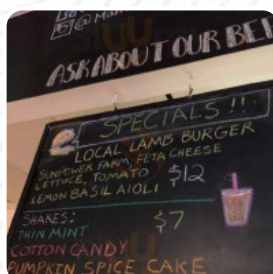 @Ma
ASK ABOUT OUR BE
SPECIALS !!
LOCAL LAMB BURGER
SUNPOWER FARM, FETA CHEESE
LETTUCE, TOMATO $12
LEMON BASIL AIOLI
SHAKES: $7
THIN MINT
COTTON CANDY
PUMPKIN SPICE CAKE